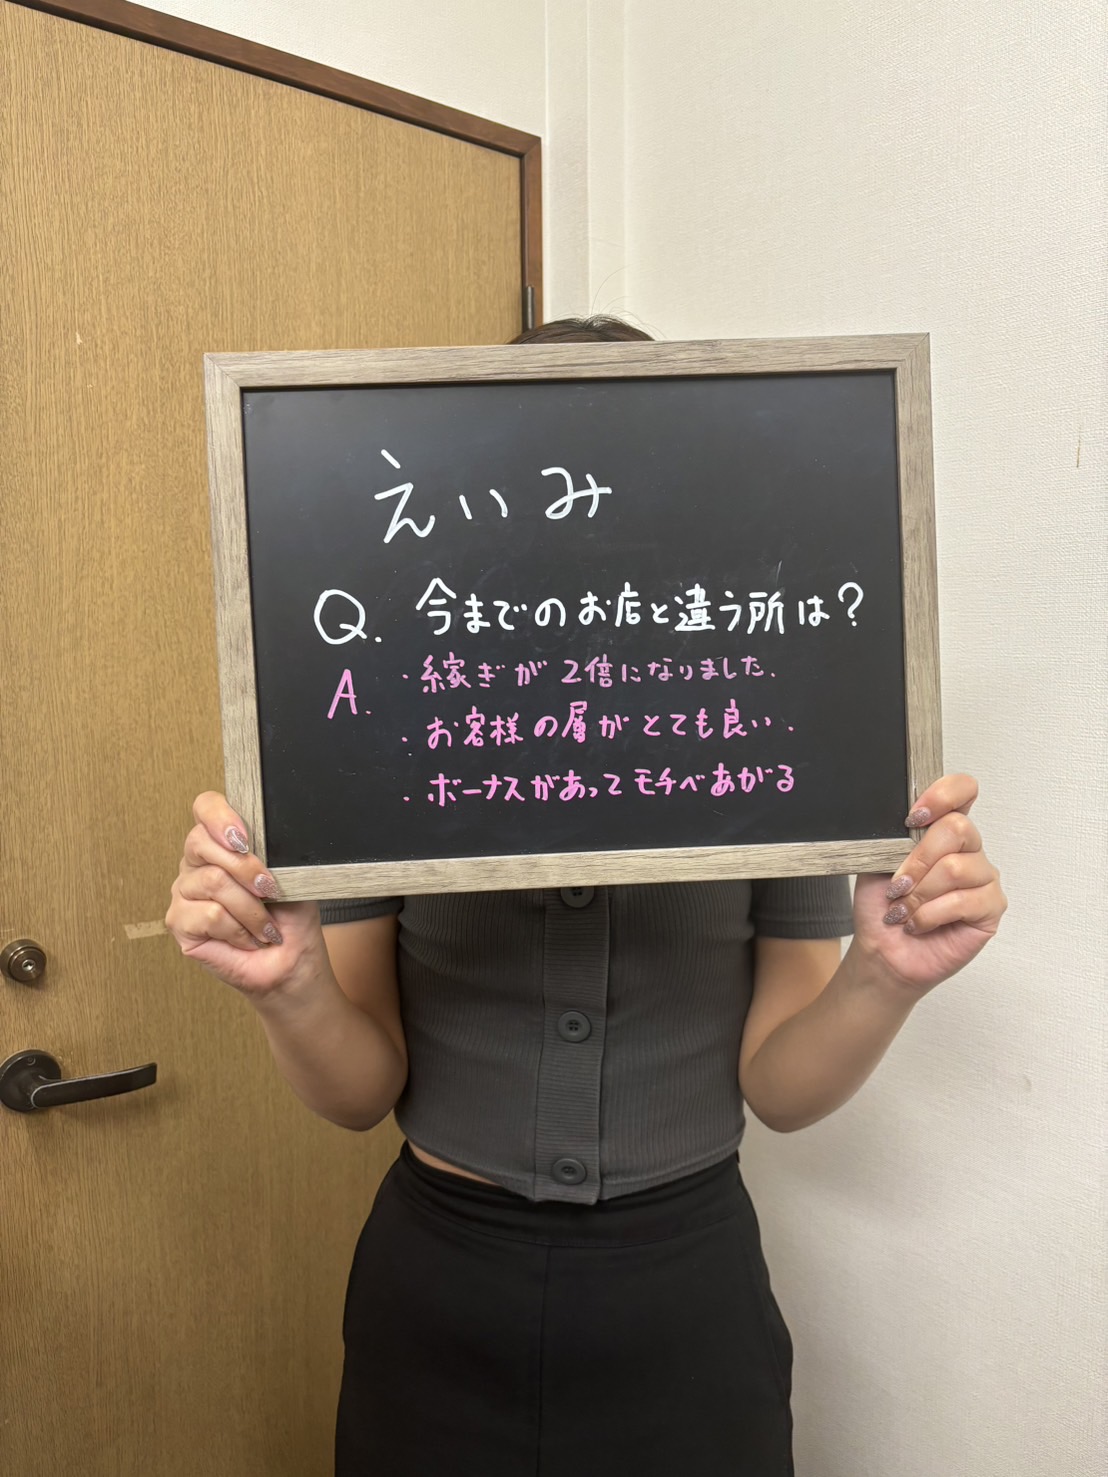 えいみ
Q. 今までのお店と違う所は?
A. ・稼ぎが2倍になりました.
・お客様の層がとても良い.
・ボーナスがあってモチベあがる